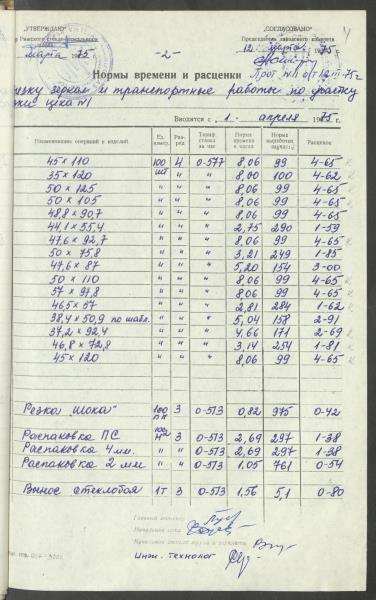 „УТВЕРЖДАЮ"
„СОГЛАСОВАНО"
Председатель заводского комитета
марта 1975
-2-
12 марта 1975
Нормы времени и расценки Прот. №11 от 12/III-75 г.
резку зеркал и транспортные работы по участку
цеха №1
Вводятся с „1" апреля 1975
Наименование операций и изделий Ед. измер. Разряд Тариф. ставка за час Норма времени в часах Норма выработки Расценок
45 x 110 100 шт 4 0-577 8,06 99 4-65
35 x 120 " " " 8,00 100 4-62
50 x 125 " " " 8,06 99 4-65
50 x 105 " " " 8,06 99 4-65
48,8 x 90,7 " " " 8,06 99 4-65
44,1 x 55,4 " " " 2,75 290 1-59
47,6 x 92,7 " " " 8,06 99 4-65
50 x 75,8 " " " 3,21 249 1-85
47,6 x 87 " " " 5,20 154 3-00
50 x 110 " " " 8,06 99 4-65
57 x 97,8 " " " 8,06 99 4-65
46,5 x 57 " " " 2,81 284 1-62
38,4 x 50,9 по шабл. " " " 5,04 158 2-91
37,2 x 92,4 " " " 4,66 171 2-69
46,8 x 72,8 " " " 3,14 254 1-81
45 x 120 " " " 8,06 99 4-65
Резка шока 100 3 0-513 0,82 975 0-42
Распаковка ПС 100 м² 3 0-513 2,69 297 1-38
Распаковка 4 мм. " " 0-513 2,69 297 1-38
Распаковка 2 мм " " 0-513 1,05 761 0-54
Вынос стеклобоя 1т 3 0-513 1,56 5,1 0-80
Главный инженер
Начальник цеха
Начальник отдела труда и зарплаты
Инж. технолог